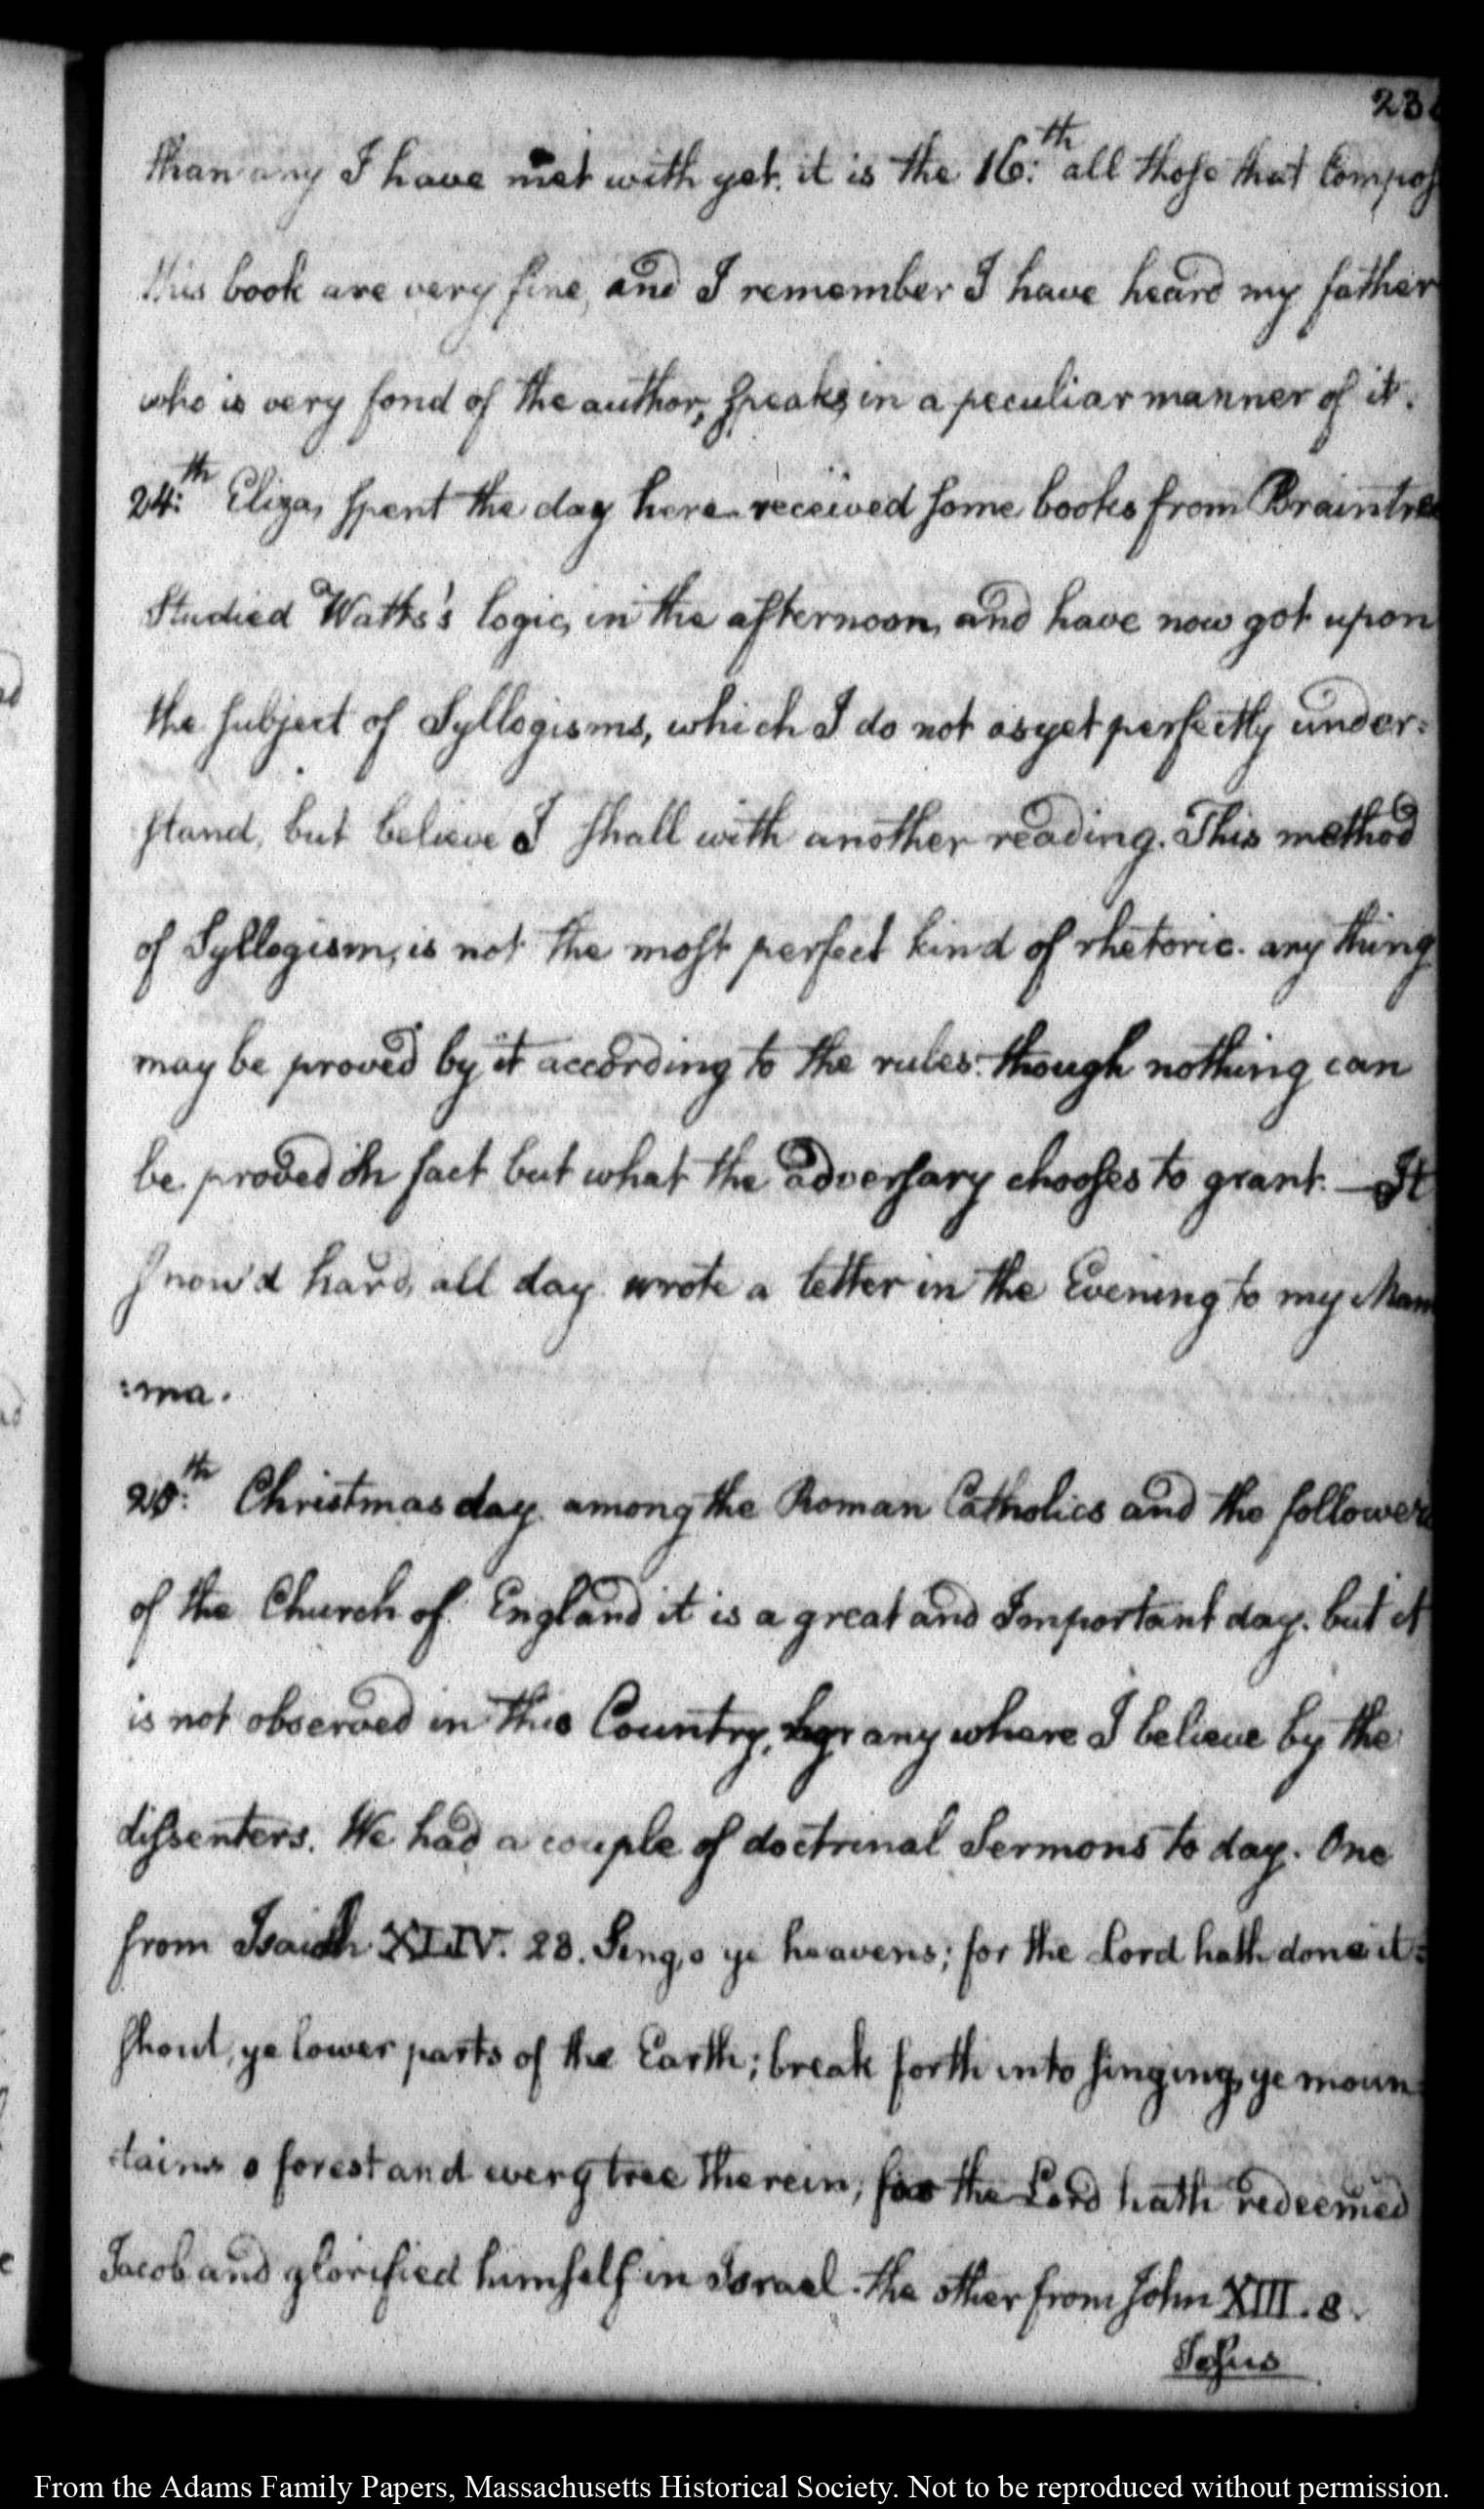 23
than any I have met with yet. it is the 16:th all those that Compos
this book are very fine, and I remember I have heard my father
who is very fond of the author, speak, in a peculiar manner of it.
24:th Eliza, spent the day here. received some books from Braintree
Studied Watts's logic, in the afternoon, and have now got upon
the subject of Syllogisms, which I do not as yet perfectly under:
stand, but believe I shall with another reading. This method
of Syllogism, is not the most perfect kind of rhetoric. any thing
may be proved by it according to the rules: though nothing can
be proved in fact but what the adversary chooses to grant. — It
snow'd hard, all day. wrote a letter in the Evening to my Mam
:ma.
25:th Christmas day. among the Roman Catholics and the followers
of the Church of England it is a great and Important day. but it
is not observed in this Country, nor any where I believe by the
dissenters. We had a couple of doctrinal Sermons to day. One
from Isaiah XLIV. 23. Sing, o ye heavens; for the Lord hath done it:
shout, ye lower parts of the Earth; break forth into singing, ye moun
tains o forest and every tree therein; for the Lord hath redeemed
Jacob and glorified himself in Israel. the other from John XIII. 8.
Jesus
From the Adams Family Papers, Massachusetts Historical Society. Not to be reproduced without permission.